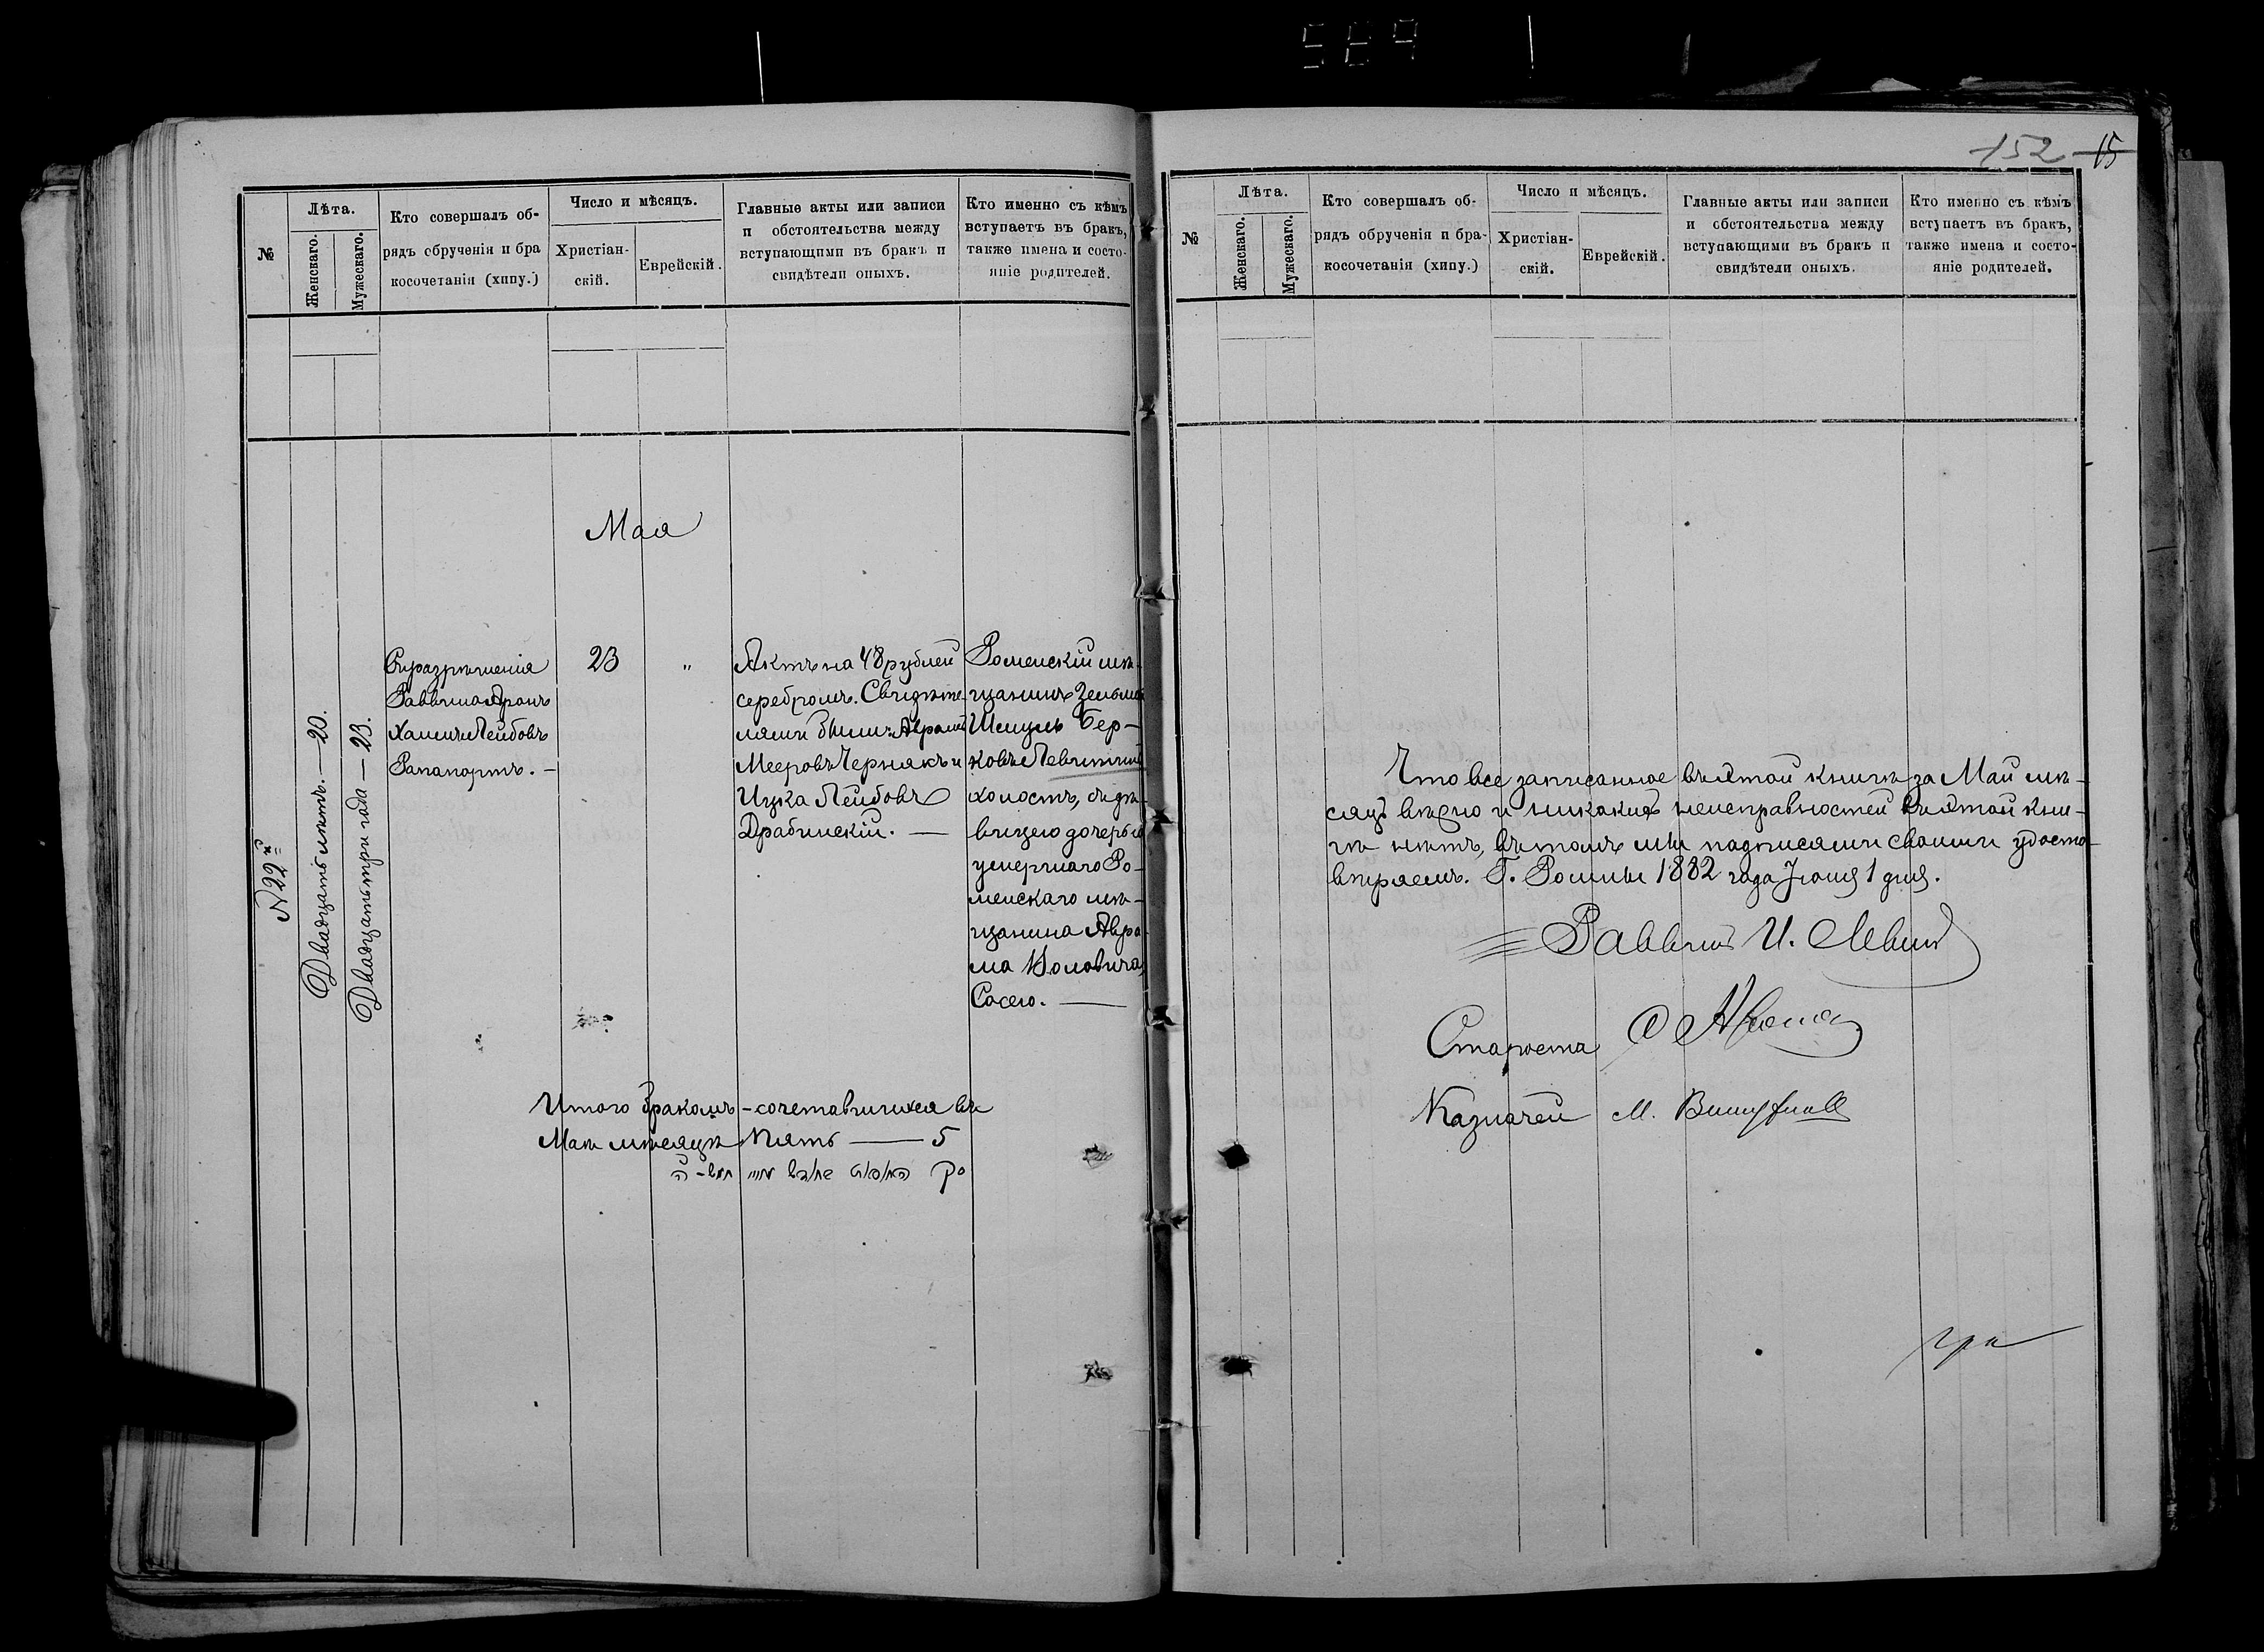 №
Лѣта.
Женскаго.
Мужескаго.
Кто совершалъ об-
рядъ обрученія и бра
косочетанія (хипу.)
Число и мѣсяцъ.
Христіан-
скій.
Еврейскій.
Главные акты или записи
и обстоятельства между
вступающими въ бракъ и
свидѣтели оныхъ.
Кто именно съ кѣмъ
вступаетъ въ бракъ,
также имена и состо-
яніе родителей.
Мая
№ 22й
Двадцать лѣтъ. — 20.
Двадцать три года — 23.
Съ разрѣшенія
Раввина Аронъ
Хаимъ Лейбовъ
Рапапортъ. —
23
"
Актъ на 48 рублей
серебромъ. Свидѣте
лями были: Аврамъ
Мееровъ Чернякъ и
Ицка Лейбовъ
Драбинскій. —
Роменскій мѣ-
щанинъ Зельманъ
Шмуль Бер-
ковъ Левитинъ
холостъ, съ дѣ-
вицею дочерью
умершаго Ро-
менскаго мѣ-
щанина Авра
ма
Сосею. —
Итого бракомъ-сочетавшихся въ
Маѣ мѣсяцѣ Пять — 5
152 15
№
Лѣта.
Женскаго.
Мужескаго.
Кто совершалъ об-
рядъ обрученія и бра-
косочетанія (хипу.)
Число и мѣсяцъ.
Христіан-
скій.
Еврейскій.
Главные акты или записи
и обстоятельства между
вступающими въ бракъ и
свидѣтели оныхъ.
Кто именно съ кѣмъ
вступаетъ въ бракъ,
также имена и состо-
яніе родителей.
Что все записанное въ этой книгѣ за Май мѣ-
сяцъ вѣрно и никакихъ неисправностей въ этой кни-
гѣ нѣтъ, въ томъ мы подписями своими удосто-
вѣряемъ. Г. Ромны 1882 года Іюня 1 дня.
Раввинъ И. Левин
Староста
Казначей М.